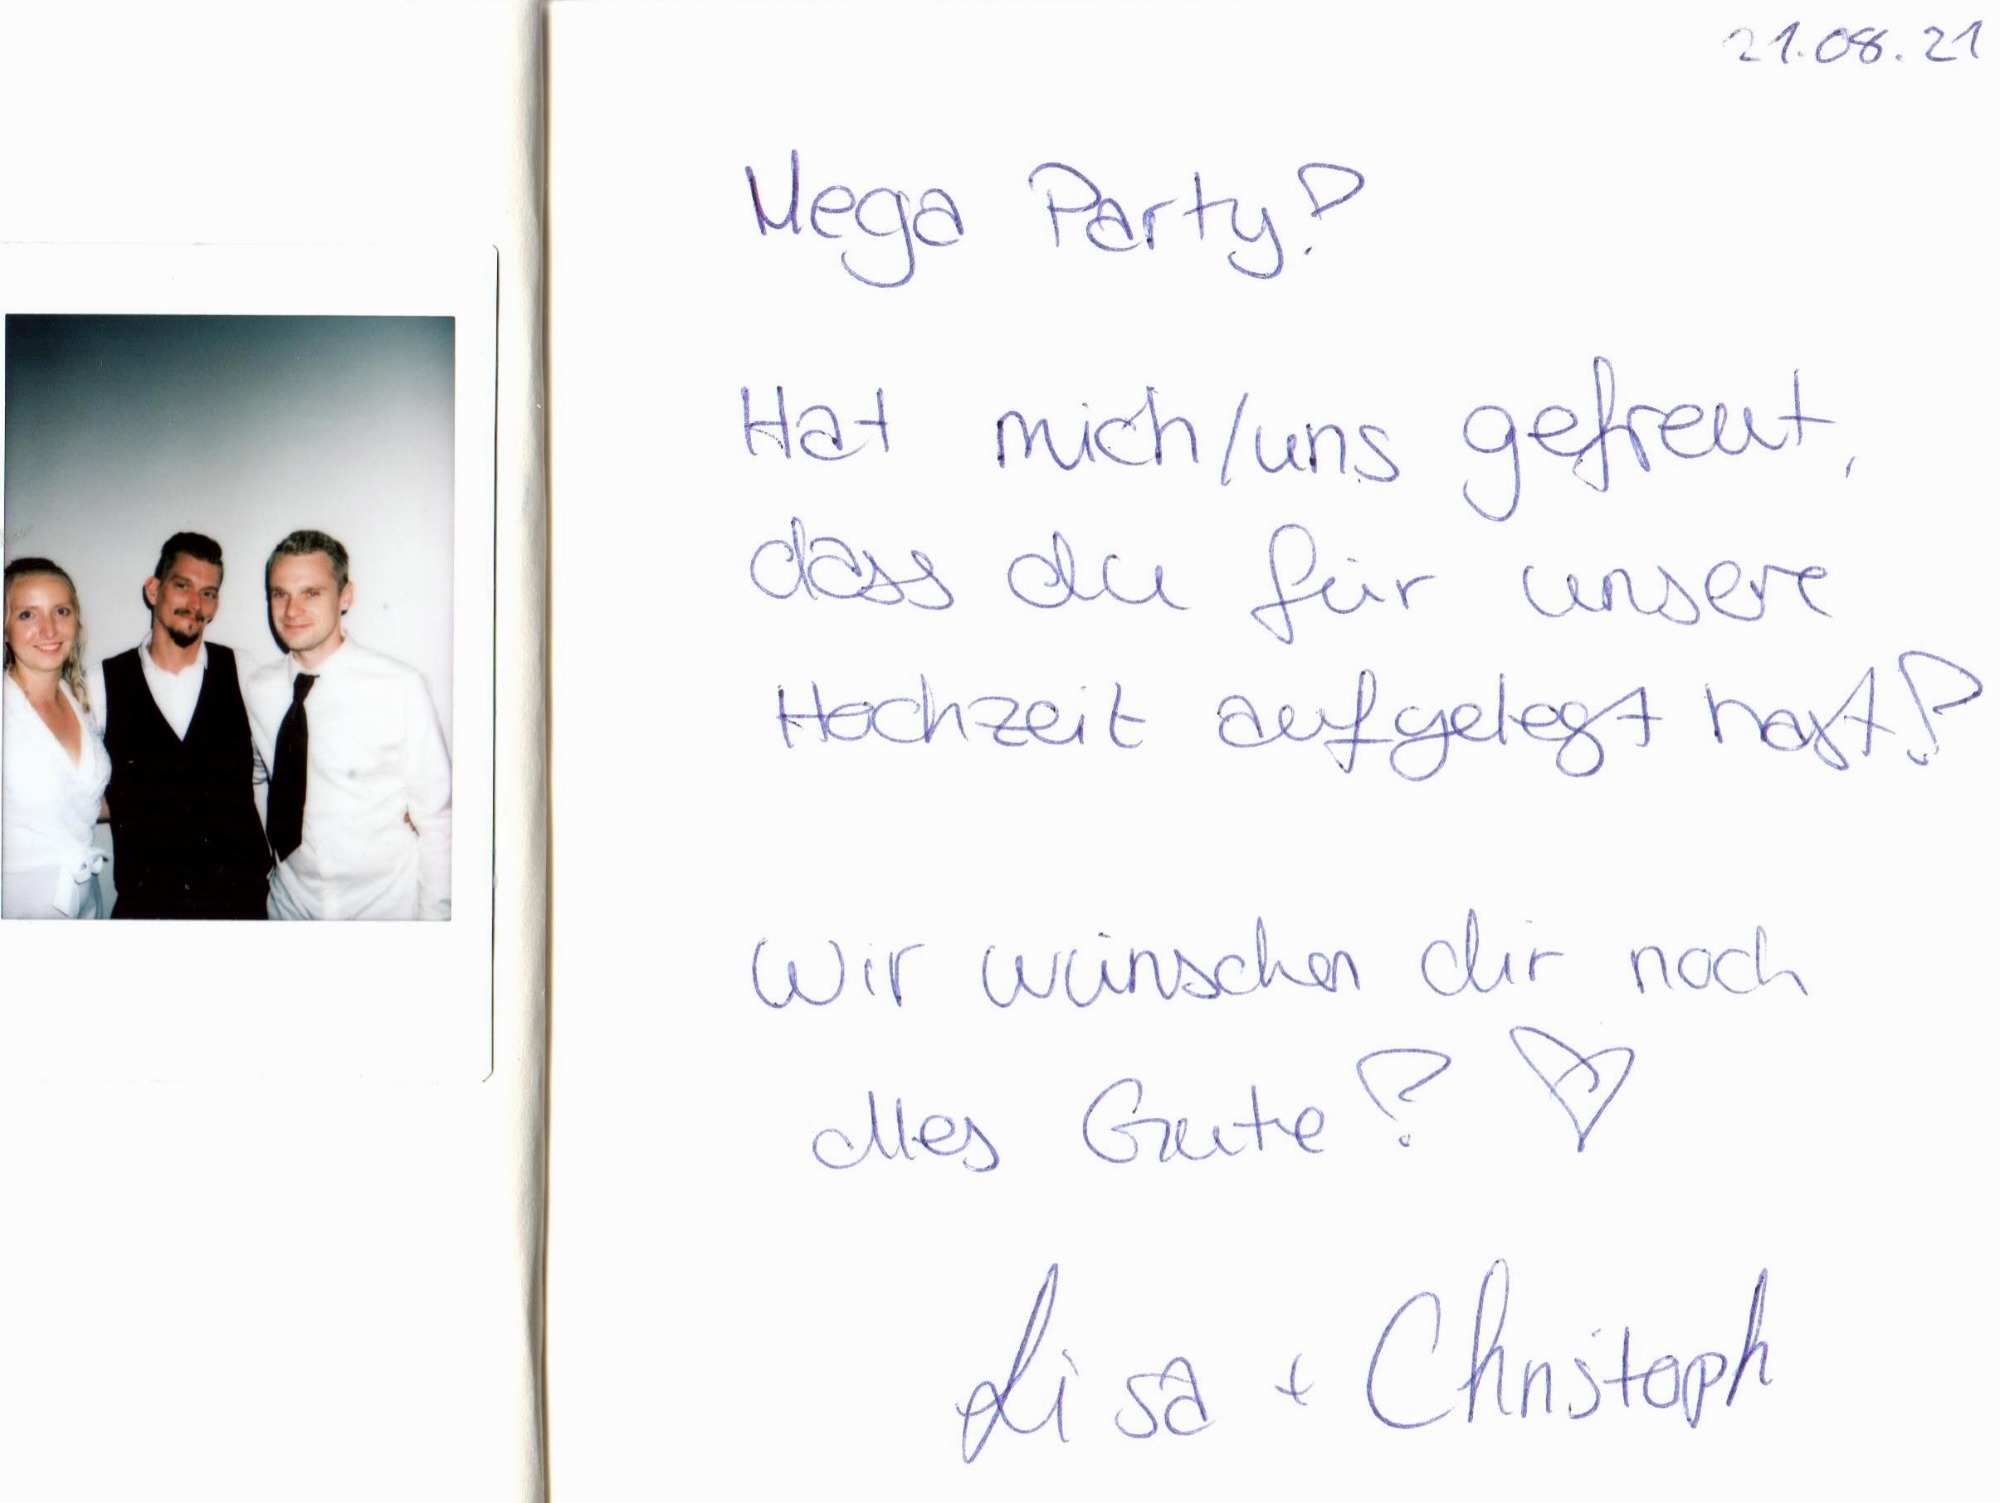 21.08.21
Mega Party!
Hat mich/uns gefreut,
dass du für unsere
Hochzeit aufgelegt hast!
Wir wünschen dir noch
alles Gute! ♡
Lisa + Christoph